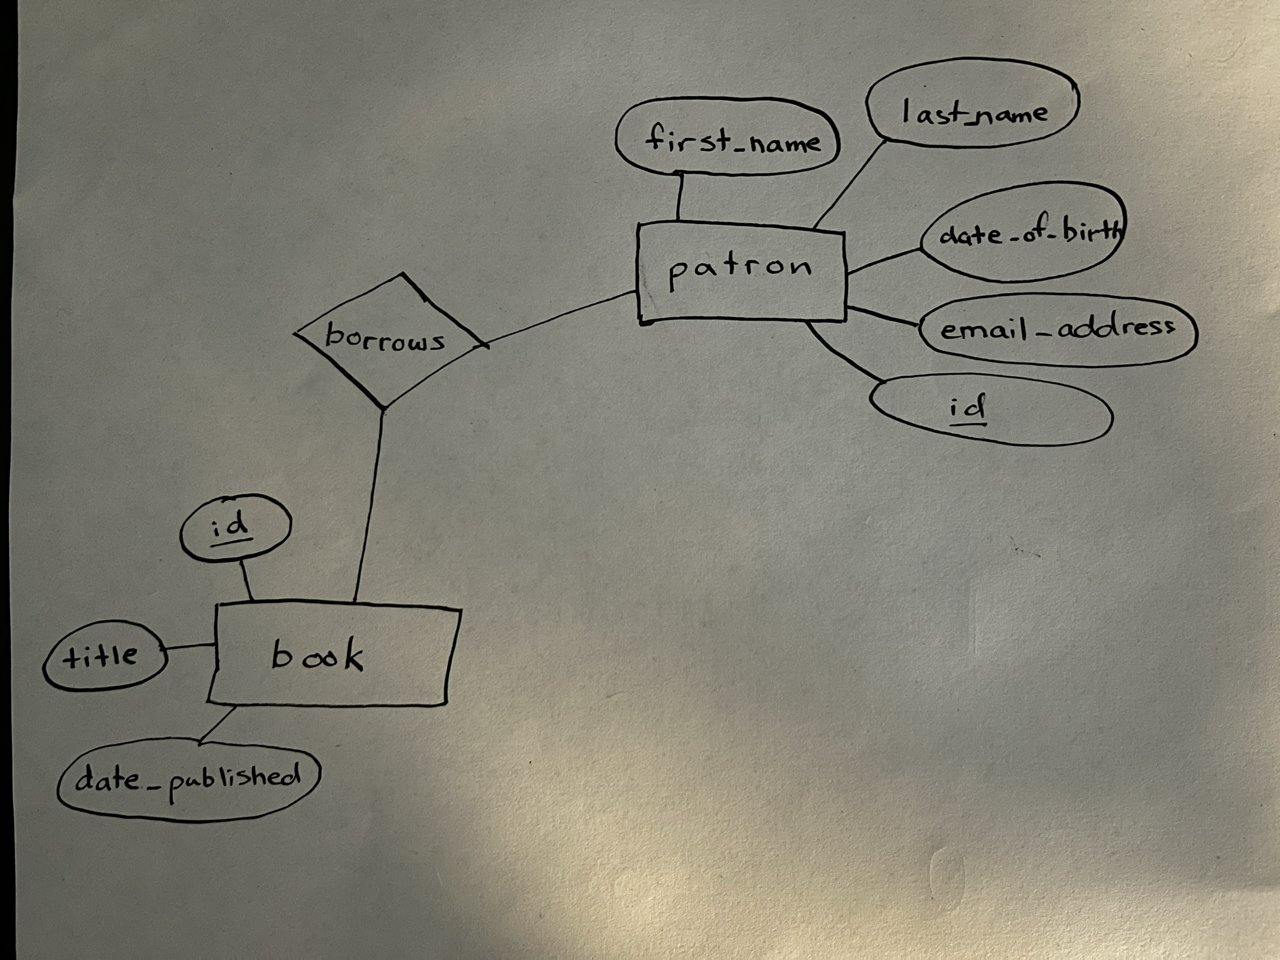 first_name
last_name
date_of_birth
patron
email_address
borrows
id
id
book
title
date_published